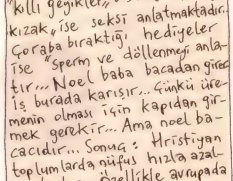 "kıllı geyikler"
kızak, ise seksi anlatmaktadır.
Çoraba bıraktığı hediyeler
ise "sperm ve döllenmeyi anla-
tır... Noel baba bacadan girer
iş burada karışır... Çünkü üre-
menin olması için kapıdan gir-
mek gerekir... Ama noel ba-
cacıdır... Sonuç: Hristiyan
toplumlarda nüfus hızla azal-
özellikle avrupada